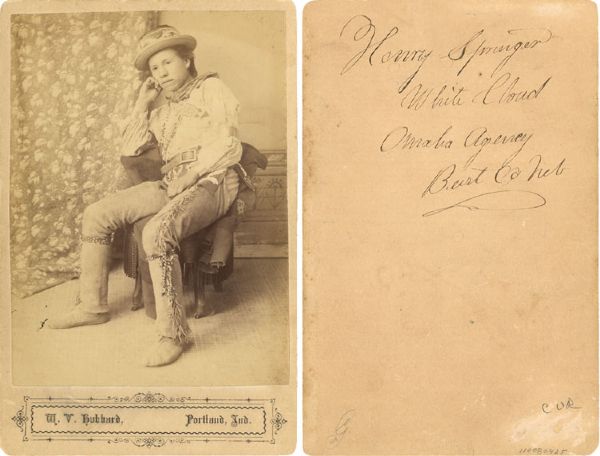 W. V. Hubbard, Portland, Ind.
Henry Springer
White Cloud
Omaha Agency
Burt Co Neb
C U R